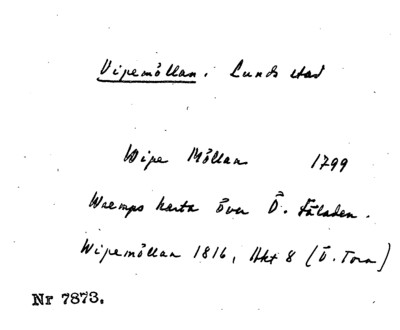 Vipemöllan. Lunds stad
Wipe Möllan 1799
Wremps karta över Ö. Fäladen.
Wipemöllan 1816, Akt 8 (Ö. Torn)
Nr 7873.